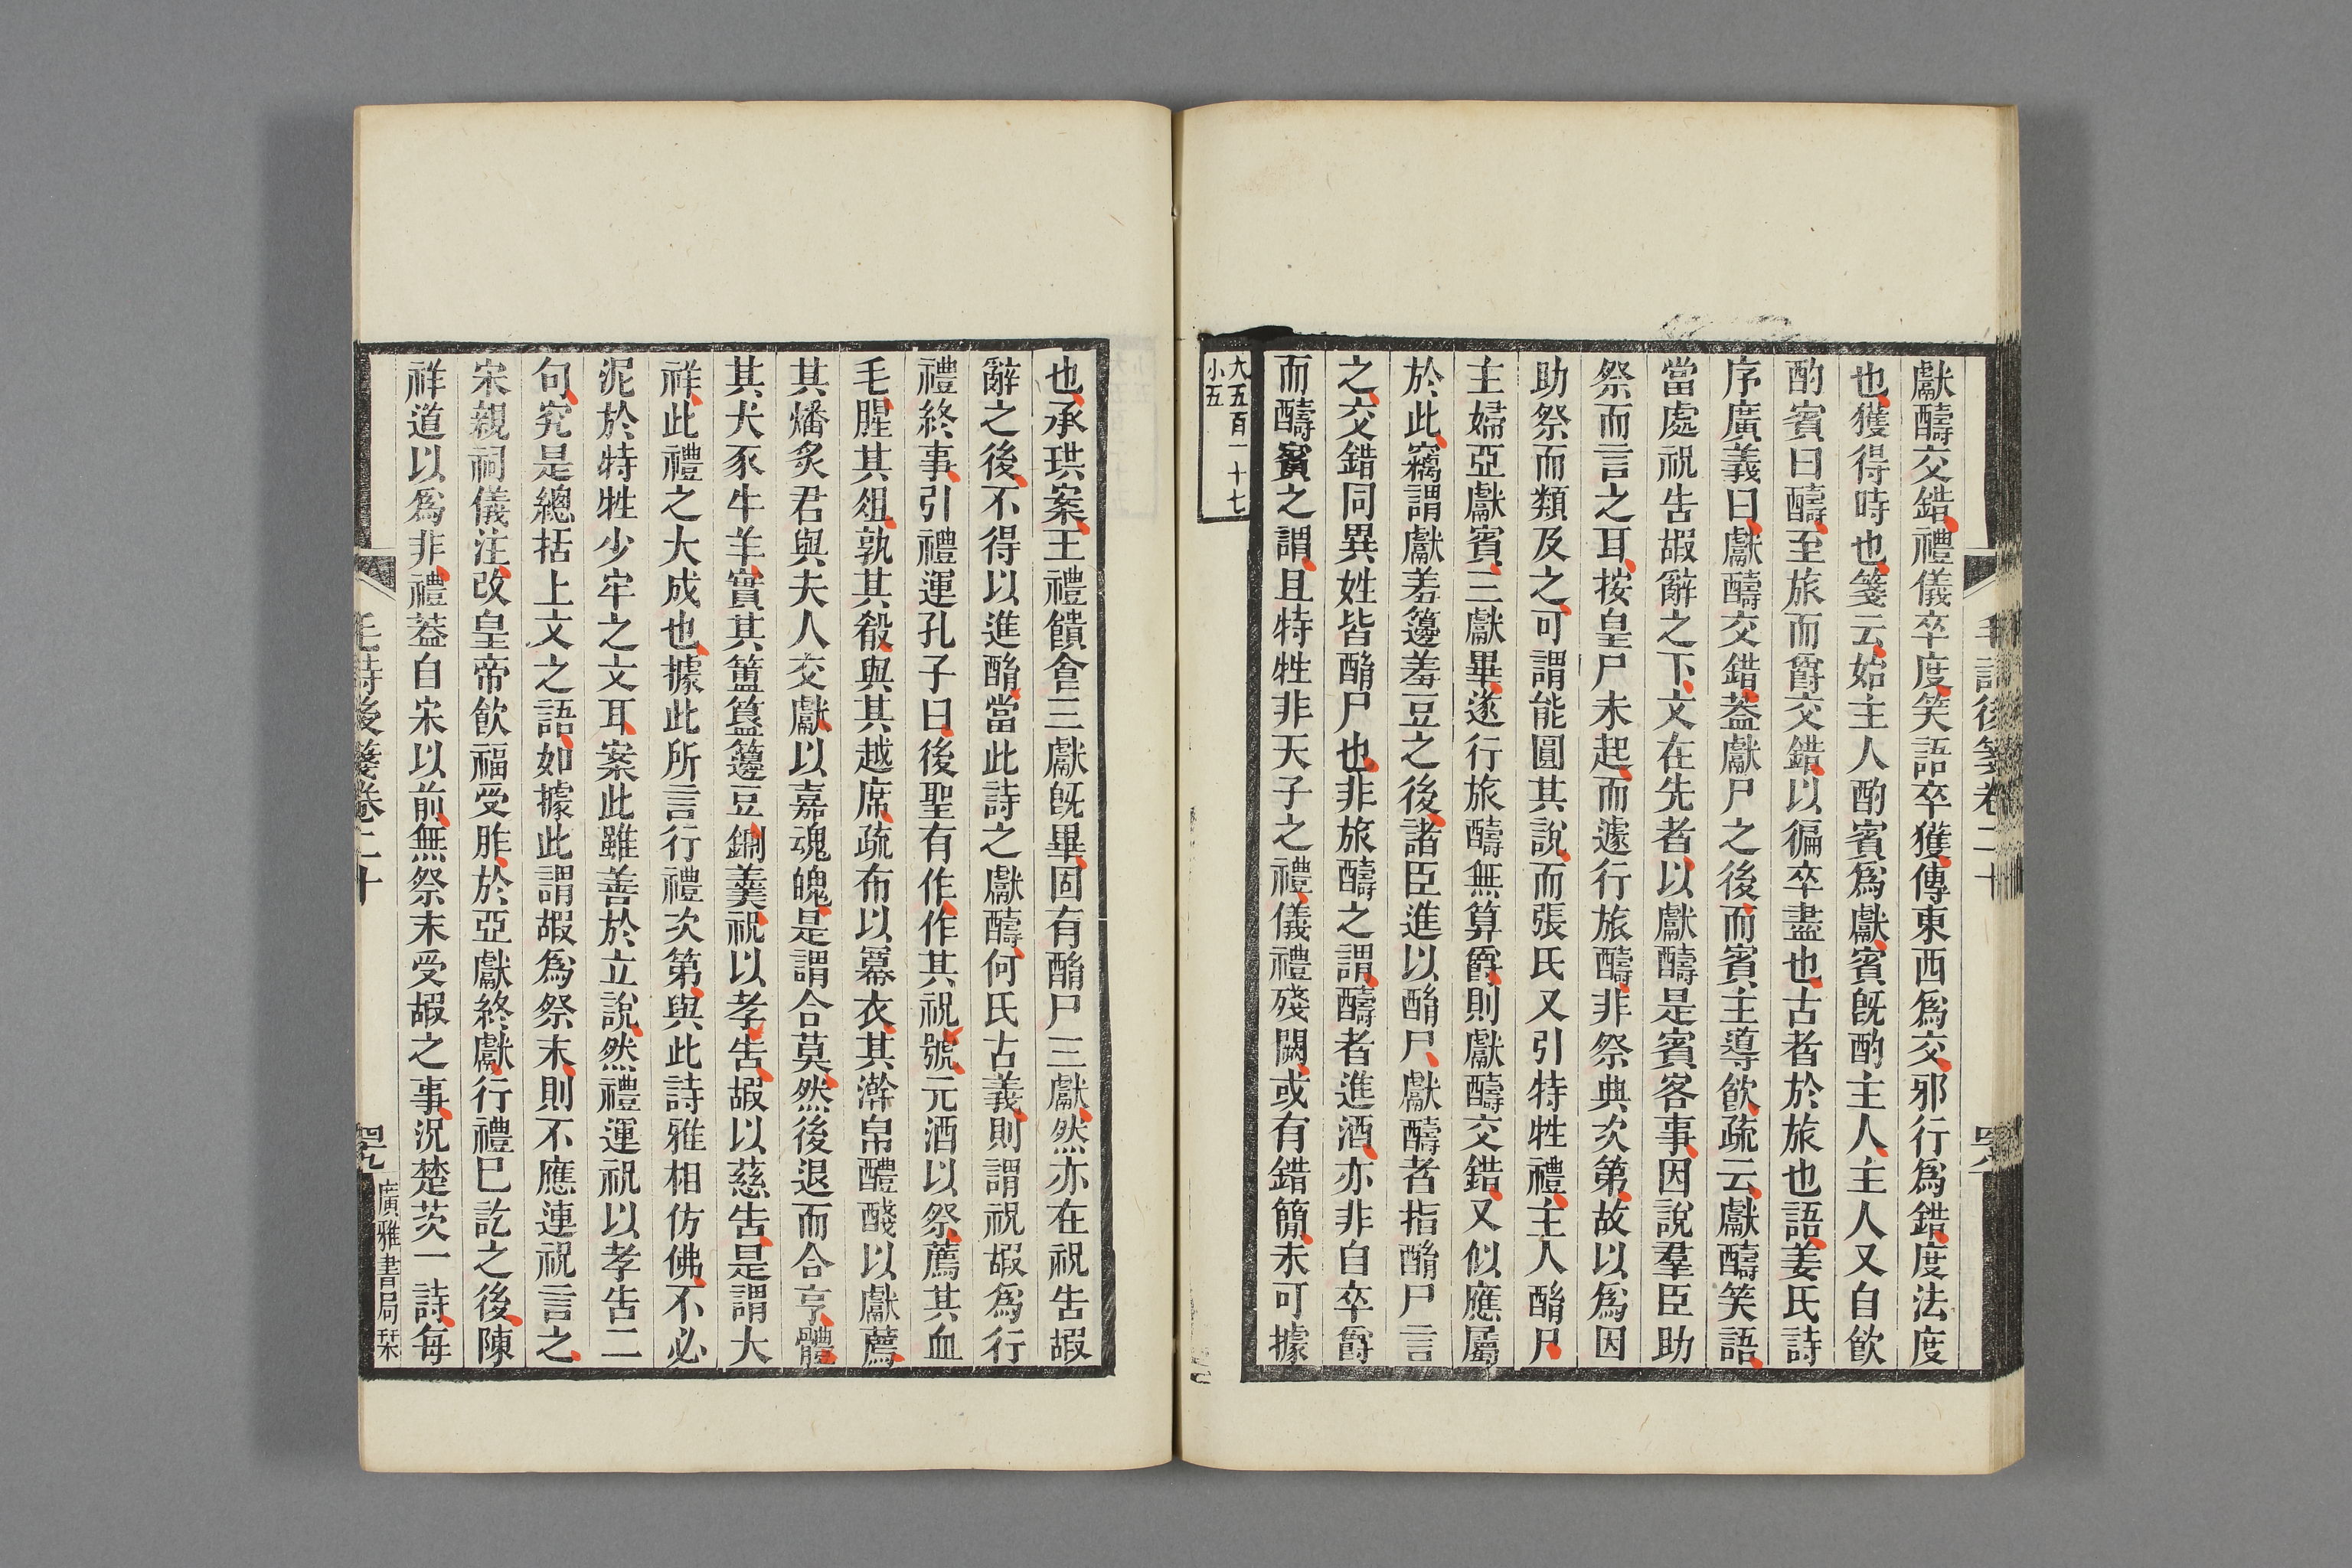 毛詩後箋卷二十
四八
獻醻交錯禮儀卒度笑語卒獲傳東西爲交邪行爲錯度法度
也獲得時也箋云始主人酌賓爲獻賓旣酌主人主人又自飮
酌賓曰醻至旅而爵交錯以徧卒盡也古者於旅也語姜氏詩
序廣義曰獻醻交錯葢獻尸之後而賓主導飮疏云獻醻笑語
當處祝告嘏辭之下文在先者以獻醻是賓客事因說羣臣助
祭而言之耳按皇尸未起而遽行旅醻非祭典次第故以爲因
助祭而類及之可謂能圓其說而張氏又引特牲禮主人酳尸
主婦亞獻賓三獻畢遂行旅醻無算爵則獻醻交錯又似應屬
於此竊謂獻羞籩羞豆之後諸臣進以酳尸獻醻者指酳尸言
之交錯同異姓皆酳尸也非旅醻之謂醻者進酒亦非自卒爵
而醻賓之謂且特牲非天子之禮儀禮殘闕或有錯簡未可據
大五百一十七
小五
也承珙案王禮饋食三獻旣畢固有酳尸三獻然亦在祝告嘏
辭之後不得以進酳當此詩之獻醻何氏古義則謂祝嘏爲行
禮終事引禮運孔子曰後聖有作作其祝號元酒以祭薦其血
毛腥其俎孰其殽與其越席疏布以冪衣其澣帛醴醆以獻薦
其燔炙君與夫人交獻以嘉魂魄是謂合莫然後退而合亨體
其犬豕牛羊實其簠簋籩豆鉶羹祝以孝告嘏以慈告是謂大
祥此禮之大成也據此所言行禮次第與此詩雅相仿佛不必
泥於特牲少牢之文耳案此雖善於立說然禮運祝以孝告二
句究是總括上文之語如據此謂嘏爲祭末則不應連祝言之
宋親祠儀注改皇帝飮福受胙於亞獻終獻行禮已訖之後陳
祥道以爲非禮葢自宋以前無祭末受嘏之事況楚茨一詩每
毛詩後箋卷二十
四九
廣雅書局栞